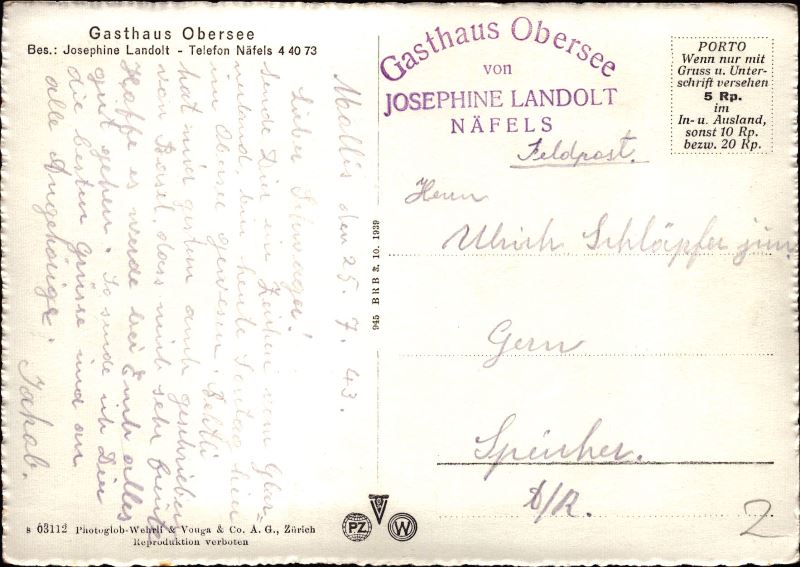 Gasthaus Obersee
Bes.: Josephine Landolt - Telefon Näfels 4 40 73
Mollis den 25. 7. 43.
Lieber Schwager!
Sende Dir ein Zeichen vom Glar=
nerland, bin heute Sontag hier
im Obersee gewesen. Bethli
hat mir gestern auch geschrieben
von Basel, dass mich sehr freute
Hoffe es werde bei Euch alles
gut gehen. So sende ich Dir
die besten Grüsse und an
alle Angehörige. Jakob.
s 03112 Photoglob-Wehrli & Vouga & Co. A. G., Zürich
Reproduktion verboten
945 BRB 3. 10. 1939
PZ
W
Gasthaus Obersee
von
JOSEPHINE LANDOLT
NÄFELS
Feldpost.
PORTO
Wenn nur mit
Gruss u. Unter-
schrift versehen
5 Rp.
im
In- u. Ausland,
sonst 10 Rp.
bezw. 20 Rp.
Herrn
Ulrich Schläpfer jun.
Gern
Speicher.
A/R.
2